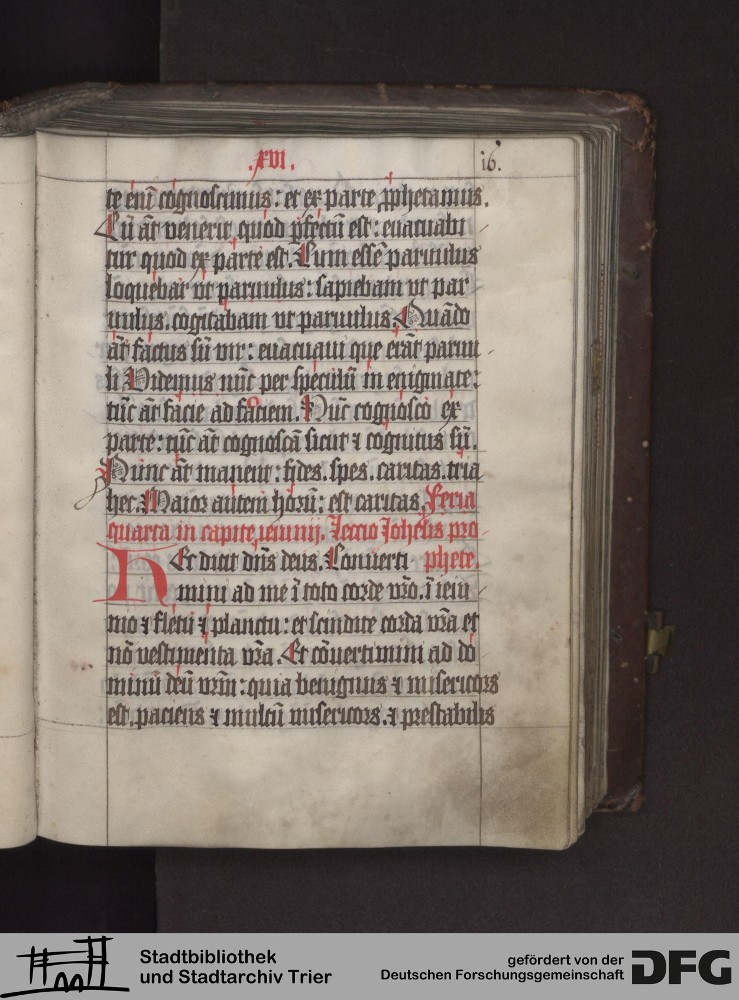 .xvi. 16.
te eni᷃ cognoscimus: et ex parte ꝓphetamus.
Cū aūt venerit quod ꝑfectū est: euacuabi
tur quod ex parte est. Cum essē paruulus
loquebar vt paruulus: sapiebam vt par
uulus. cogitabam vt paruulus. Quādo
aūt factus sū vir: euacuaui que erāt paruu
li Videmus nūc per speculū in enigmate:
tūc aūt facie ad faciem. Nūc cognosco ex
parte: tūc aūt cognoscā sicut ⁊ cognitus sū.
Nunc aūt manent: fides. spes. caritas. tria
hec. Maior autem horū: est caritas. Feria
quarta in capite ieiunij. Lectio Johelis pro
phete.
Hec dicit dn̄s deus. Conuerti
mini ad me ī toto corde vr̄o. ī ieiu
nio ⁊ fletu ⁊ planctu: et scindite corda vr̄a et
nō vestimenta vr̄a. Et cōuertimini ad do
minū deū vr̄m: quia benignus ⁊ misericors
est. paciens ⁊ multū misericors. ⁊ prestabilis
Stadtbibliothek
und Stadtarchiv Trier
gefördert von der
Deutschen Forschungsgemeinschaft
DFG